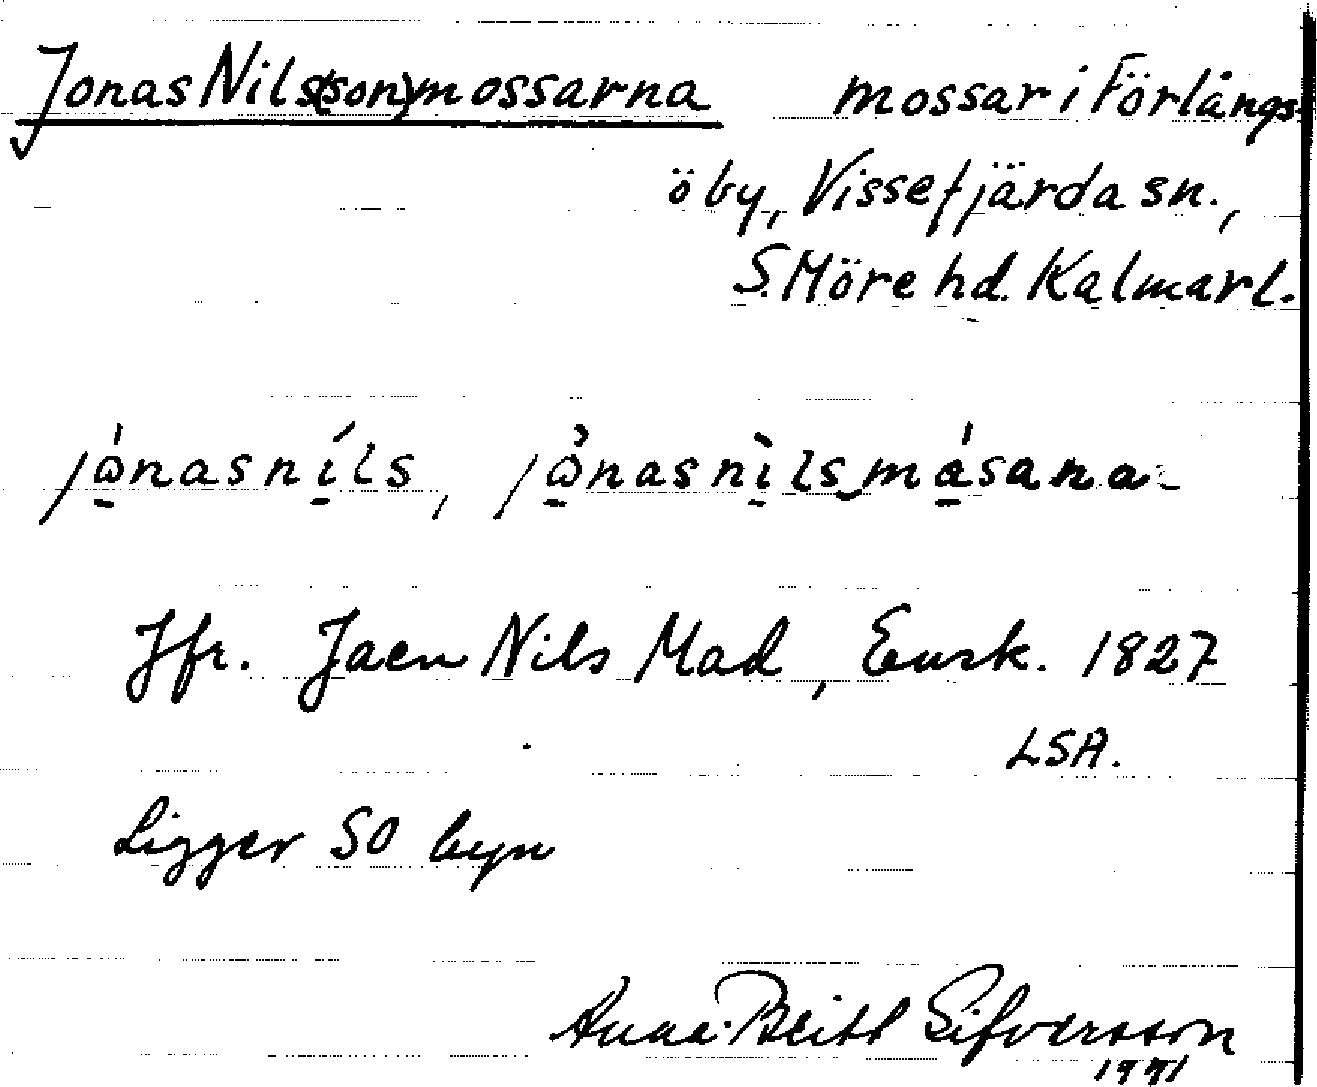 Jonas Nils(son)mossarna mossar i Förlångs-
ö by, Vissefjärda sn.,
S. Möre hd. Kalmar l.
jo̱nasni̱ls, jo̱nasni̱lsma̱sana
Jfr. Jaen Nils Mad, Ensk. 1827
LSA.
Ligger SO byn
Anna-Britt Sifversson
1971